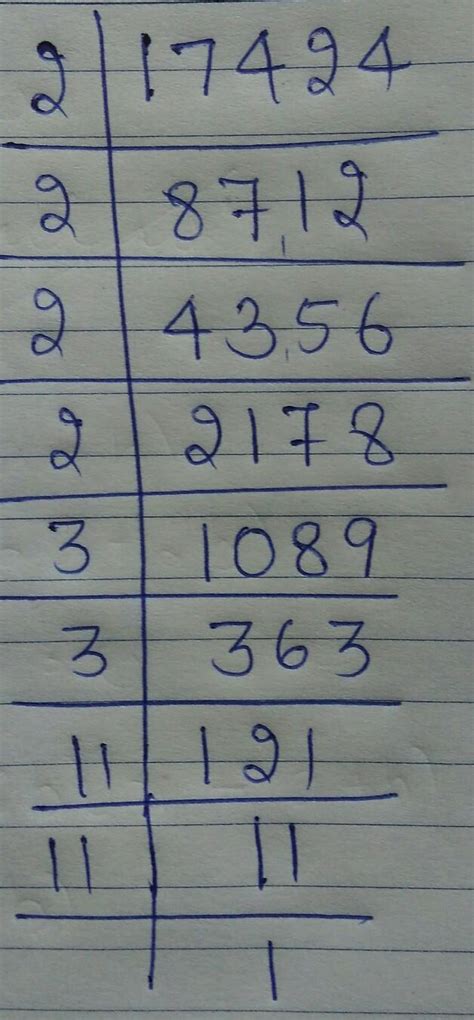 2 | 17424
2 | 87,12
2 | 43,56
2 | 2178
3 | 1089
3 | 363
11 | 121
11 | 11
| 1